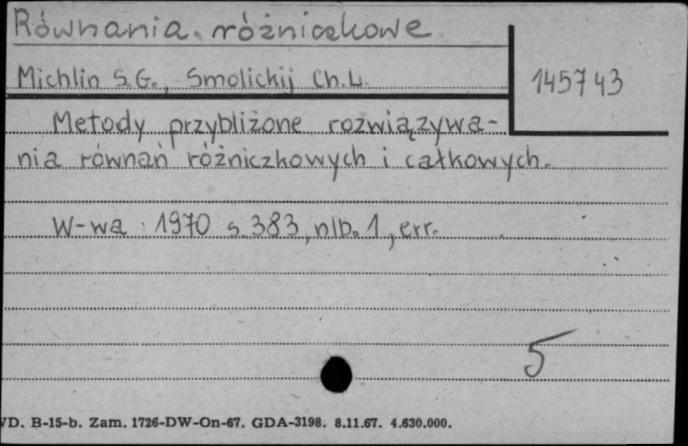 Równania różniczkowe
Michlin S.G., Smolickij Ch.L.
145743
Metody przybliżone rozwiązywa-
nia równań różniczkowych i całkowych.
W-wa 1970 s. 383, nlb. 1, err.
5
VD. B-15-b. Zam. 1726-DW-On-67. GDA-3198. 8.11.67. 4.630.000.